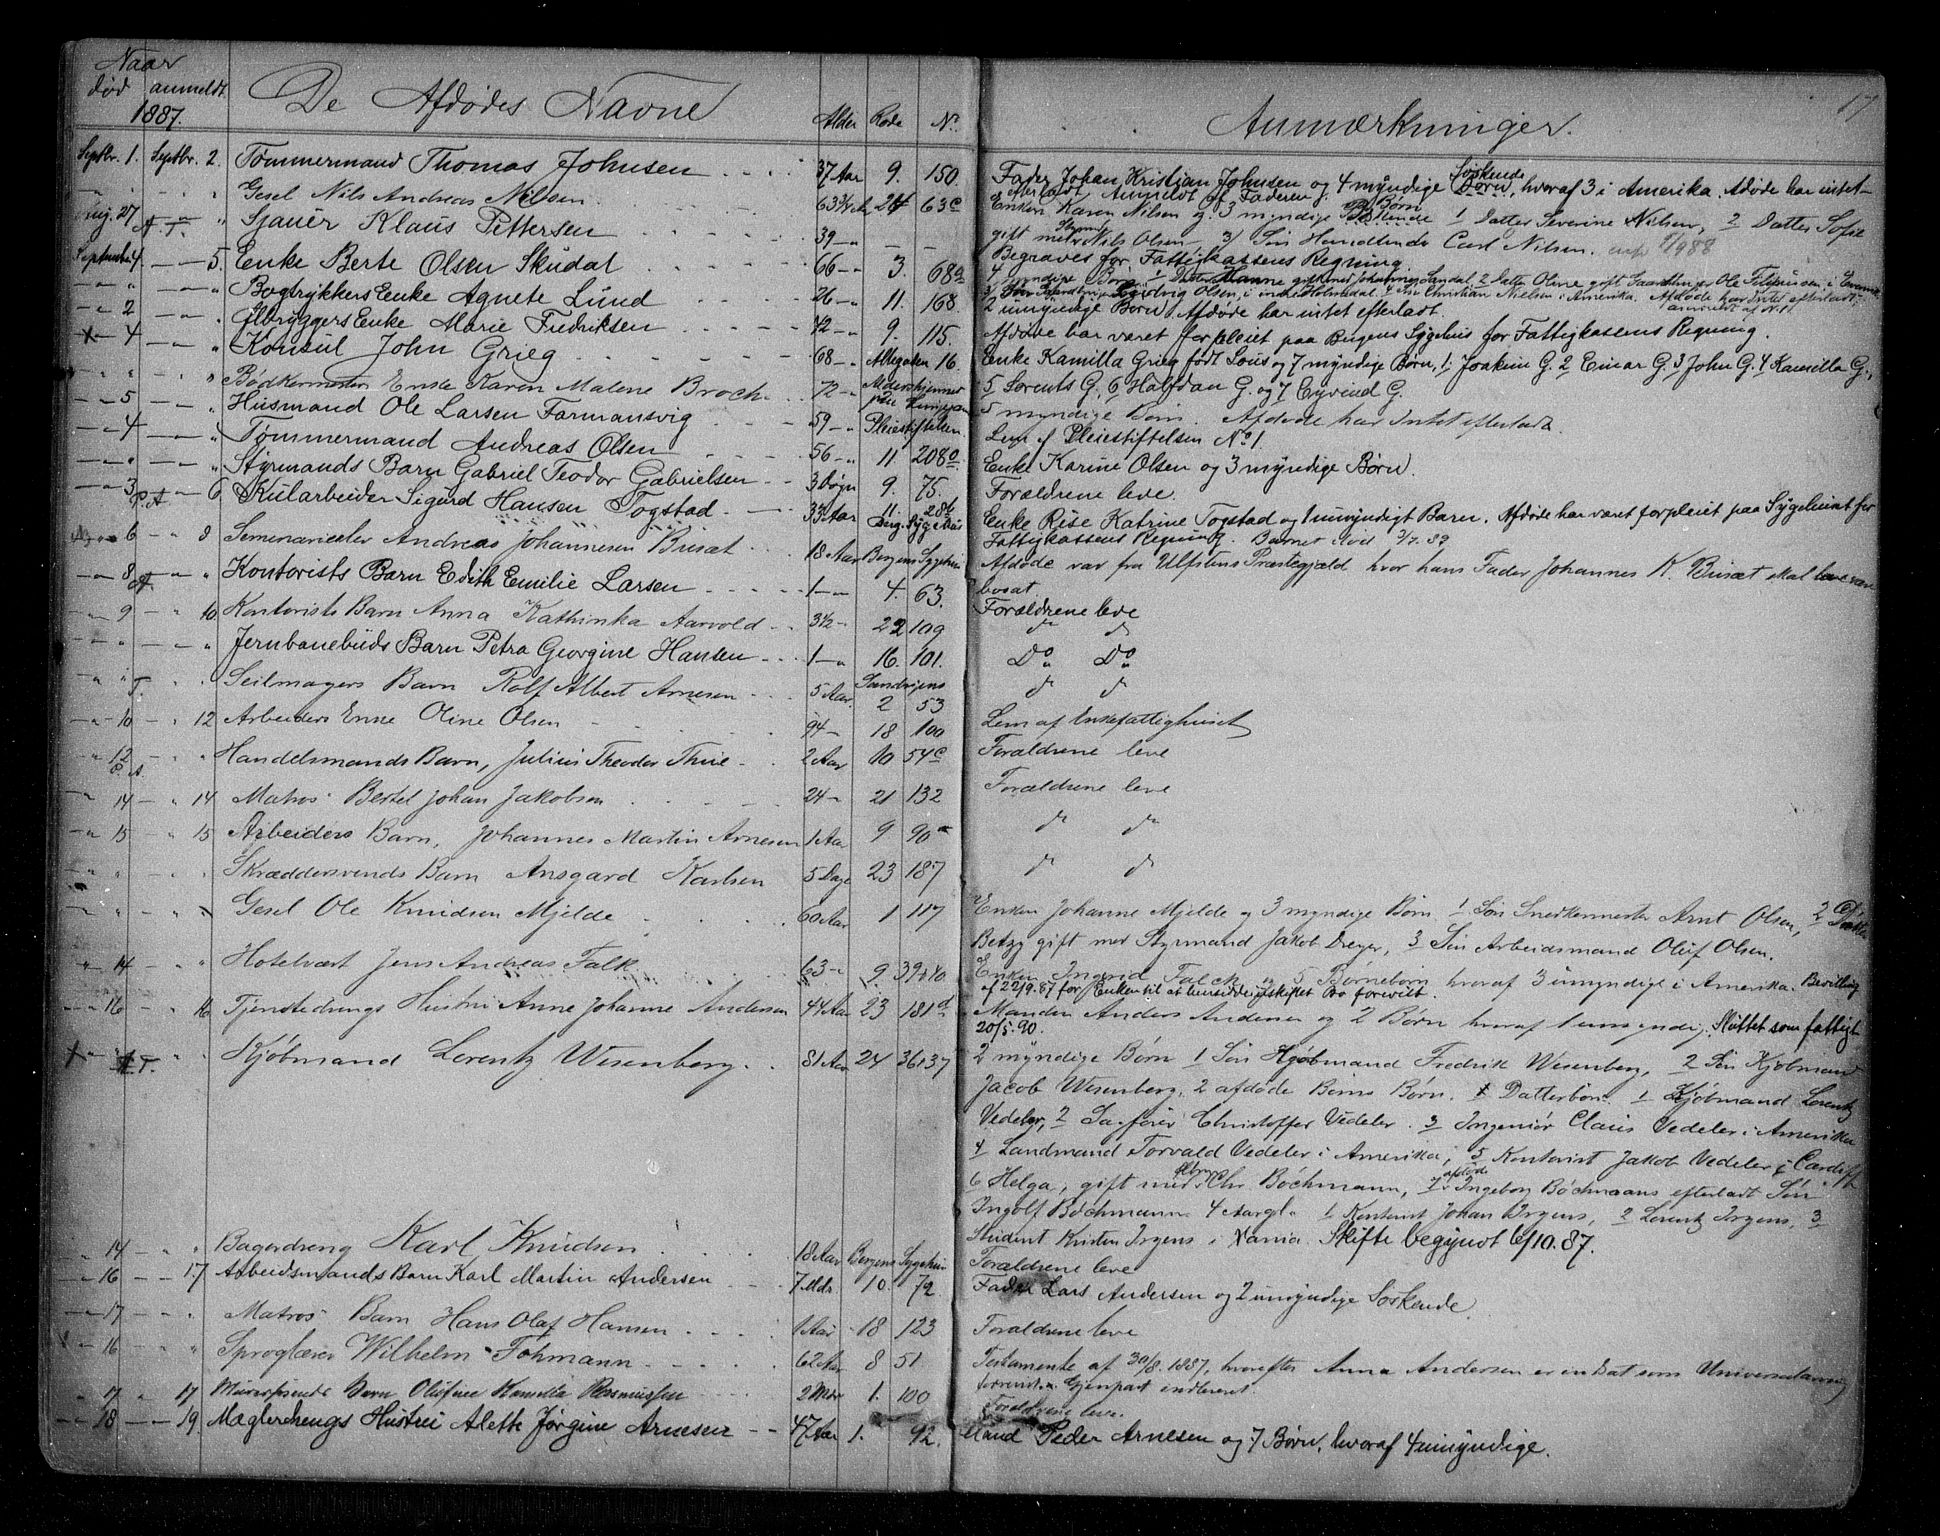 17
Naar
død anmeldt
1887.
De Afdødes Navne
Alder Rode No.
Anmærkninger.
Septbr. 1. Septbr. 2. Tømmermand Thomas Johnsen 37 Aar 9. 150.
Fader Johan Kristian Johnsen og 4 myndige Søskende Børn, hvoraf 3 i Amerika. Afdøde har intet
efterladt Anmeldt af Faderen
Gesel Nils Andreas Nilsen 63 24 63c
Enken Karen Nilsen og 3 myndige Børn 1 Datter Severine Nilsen, 2 Datter Sofie
gift med Nils Olsen 3/ Søn Handlende Carl Nilsen.
Aug. 27 A.T. Sjauer Klaus Pettersen 39
Begraves for Fattigkassens Regning
Septembr 4. 5. Enke Berte Olsen Skudal 66 3. 68a
4 myndige Børn
Bogtrykkers Enke Agnete Lund 26 11. 168.
2 umyndige Børn, Afdøde har intet efterladt.
2 Ølbryggers Enke Marie Fredriksen 72 9. 115.
Afdøde har været forpleiet paa Bergens Sygehus for Fattigkassens Regning.
4 Konsul John Grieg 68 Allegaten 16.
Enke Kamilla Grieg født Lous og 7 myndige Børn, 1 Joakim G. 2 Einar G. 3 John G. 4 Kamilla G.,
5 Lorents G, 6 Halfdan G. og 7 Eyvind G.
Bødkermester Enke Karen Malene Broch 72
5 myndige Børn. Afdøde har Intet efterladt.
5 Husmand Ole Larsen Farmansvig 59 Pleiestiftelsen
Lem af Pleiestiftelsen No 1.
4 Tømmermand Andreas Olsen 56 11 208
Enke Karine Olsen og 3 myndige Børn.
Styrmands Barn Gabriel Teodor Gabrielsen 3 Døgn 9. 75.
Forældrene leve.
3 6. Kularbeider Sigurd Hansen Togstad 33 Aar 11. 28b Berg. Sygehus
Enke Rise Katrine Togstad og 1 umyndigt Barn. Afdøde har været forpleiet paa Sygehuset for
Fattigkassens Regning. Barnet død 3/7. 89
6 8 Seminarieelev Andreas Johannesen Busæt 18 Aar Bergens Sygehus
Afdøde var fra Ulfstens Præstegjæld hvor hans Fader Johannes K. Busæt skal være
bosat
8 Kontorists Barn Edith Emilie Larsen 1 4. 63.
Forældrene leve
9 10 Kontorists Barn Anna Kathinka Aarvold 3½ 22 109
do do
Jernbanebuds Barn Petra Georgine Hansen 1 16. 101.
Do Do
T. Seilmagers Barn Rolf Albert Arnesen 5 Aar Sandvigens 2 53
do do
10 12 Arbeiders Enke Oline Olsen 94 18 100
Lem af Enkefattighuset
12 Handelsmands Barn, Julius Theodor Thue 2 Aar 10 54c
Forældrene leve
14 14 Matros Bertel Johan Jakobsen 24 21 132
Forældrene leve
15 15 Arbeiders Barn, Johannes Martin Arnesen 1 Aar 9 90a
do do
Skræddersvends Barn Ansgard Karlsen 5 Dage 23 187
do do
Gesel Ole Knudsen Mjelde 60 Aar 1 117
Enken Johanne Mjelde og 3 myndige Børn 1 Søn Snedkermester Arnt Olsen, 2 Datter
Betzy gift med Styrmand Jakob Dreyer, 3 Søn Arbeidsmand Oluf Olsen.
14 Hotelvært Jens Andreas Falk 63 9 39 40
Enken Ingerid Falck og 5 Børnebørn hvoraf 3 umyndige i Amerika. Bevilling
af 22/9. 87 for Enken til at hensidde i uskiftet Bo forevist.
16 16 Tjenstedrengs Hustru Anne Johanne Andersen 44 Aar 23 181d
Manden Anders Andersen og 2 Børn hvoraf 1 umyndig. Sluttet som fattigt
20/5. 90.
A.T. Kjøbmand Lorentz Wesenberg 81 Aar 24 36 37
2 myndige Børn 1 Søn Kjøbmand Fredrik Wesenberg, 2 Søn Kjøbmand
Jacob Wesenberg, 2 afdøde Børns Børn. Datterbørn 1 Kjøbmand Lorentz
Vedeler, 2 Sagfører Christoffer Vedeler. 3 Ingeniør Claus Vedeler i Amerika
4 Landmand Torvald Vedeler i Amerika, 5 Kontorist Jakob Vedeler i Cardiff
6 Helga, gift med Chr. Bøchmann, 7 afdøde Ingeborg Bøchmanns efterladt Søn
Ingolf Bøchmann 4 Aar gl. 1 Kontorist Johan Irgens, 2 Lorentz Irgens, 3
Student Kristen Irgens i Xania. Skifte begyndt 6/10. 87.
14 Bagerdreng Karl Knudsen 18 Aar Bergens Sygehus
Forældrene leve
16 17 Arbeidsmands Barn Karl Martin Andersen 7 Mdr. 10. 72.
Fader Lars Andersen og 2 umyndige Søskende
17 Matros Barn Hans Olaf Hansen 1 Aar 18 123
Forældrene leve
16 Sproglærer Wilhelm Fohmann 62 Aar 8 51
Testamente af 30/8. 1887, hvorefter Anna Andersen er indsat som Universalarving
forevist. Gjenpart indleveret.
17 17 Barn Olutine Kamilla Rasmussen 2 Mdr 1. 100
Forældrene leve.
18 19. Mæglerdrengs Hustru Alette Jørgine Arnesen 47 Aar 1. 92.
Mand Peder Arnesen og 7 Børn, hvoraf 4 umyndige.